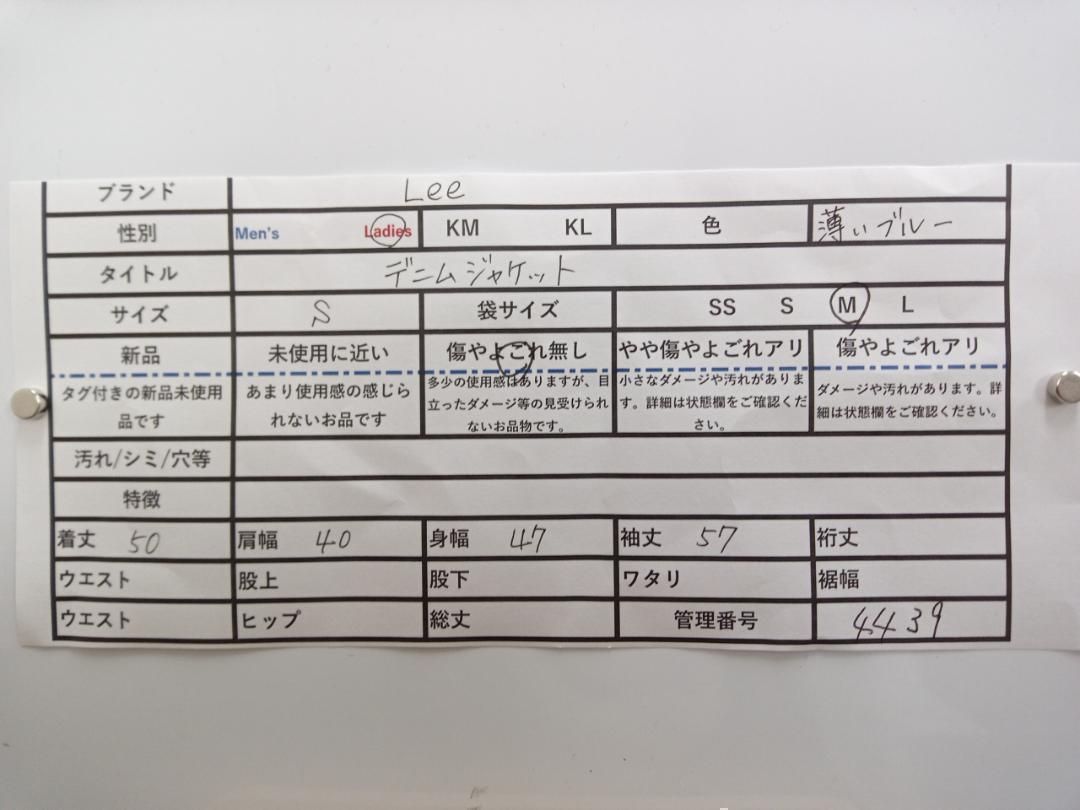 ブランド Lee
性別 Men's Ladies KM KL 色 薄いブルー
タイトル デニムジャケット
サイズ S 袋サイズ SS S M L
新品 未使用に近い 傷やよごれ無し やや傷やよごれアリ 傷やよごれアリ
タグ付きの新品未使用品です あまり使用感の感じられないお品です 多少の使用感はありますが、目立ったダメージ等の見受けられないお品物です。 小さなダメージや汚れがあります。詳細は状態欄をご確認ください。 ダメージや汚れがあります。詳細は状態欄をご確認ください。
汚れ/シミ/穴等
特徴
着丈 50 肩幅 40 身幅 47 袖丈 57 裄丈
ウエスト 股上 股下 ワタリ 裾幅
ウエスト ヒップ 総丈 管理番号 4439